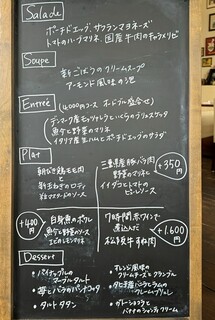 Salade
ポーチドエッグ、サフランマヨネーズ
トマトのハーブマリネ、国産牛肉の
Soupe
新ごぼうのクリームスープ
アーモンド風味の泡
Entrée
(4,000円コース オードブル盛合せ)
デンマーク産モッツァレラといくらの
魚介と野菜のマリネ
イタリア産生ハムとポーチドエッグのサラダ
Plat
朝びき鶏モモ肉と
粒マスタードのソース
三重県産豚バラ肉
野菜のマリネと
イイダコとトマトの
ソース
+350円
+400円
白身魚のポワレ
魚介と野菜のソース
7時間赤ワインで
煮込んだ
牛ほほ肉
+1,600円
Dessert
・パイナップルの
タルト
・苺とバラのパンナコッタ
・タルトタタン
・オレンジ風味の
クリームチーズとクランブル
・クレームブリュレ
・ガトーショコラと
バナナのシャンティクリーム